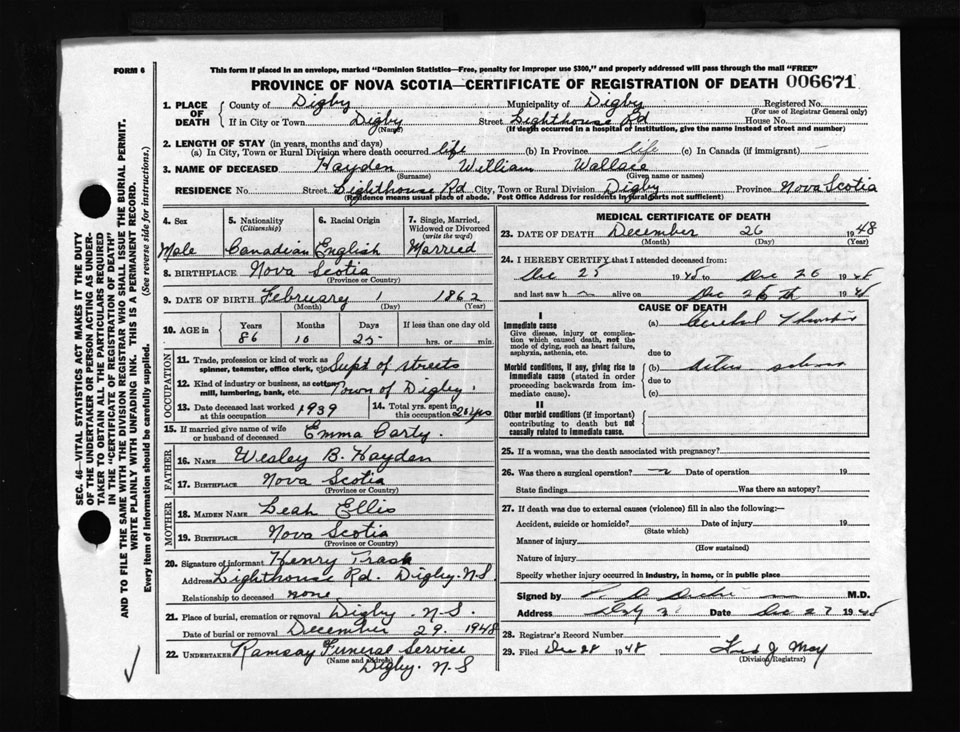 FORM 6
This form if placed in an envelope, marked "Dominion Statistics—Free, penalty for improper use $300," and properly addressed will pass through the mail "FREE"
PROVINCE OF NOVA SCOTIA—CERTIFICATE OF REGISTRATION OF DEATH 006671
SEC. 46—VITAL STATISTICS ACT MAKES IT THE DUTY
OF THE UNDERTAKER OR PERSON ACTING AS UNDER-
TAKER TO OBTAIN ALL THE PARTICULARS REQUIRED
IN THE "CERTIFICATE OF REGISTRATION OF DEATH"
AND TO FILE THE SAME WITH THE DIVISION REGISTRAR WHO SHALL ISSUE THE BURIAL PERMIT.
WRITE PLAINLY WITH UNFADING INK. THIS IS A PERMANENT RECORD.
Every item of Information should be carefully supplied. (See reverse side for instructions.)
1. PLACE OF DEATH County of Digby Municipality of Digby Registered No.
(For use of Registrar General only)
If in City or Town Digby Street Lighthouse Rd House No.
(Name) (If death occurred in a hospital or institution, give the name instead of street and number)
2. LENGTH OF STAY (in years, months and days)
(a) In City, Town or Rural Division where death occurred life (b) In Province life (c) In Canada (if immigrant) —
3. NAME OF DECEASED Hayden William Wallace
(Surname) (Given name or names)
RESIDENCE No. Street Lighthouse Rd City, Town or Rural Division Digby Province Nova Scotia
(Residence means usual place of abode. Post Office Address for residents in rural parts not sufficient)
4. Sex 5. Nationality (Citizenship) 6. Racial Origin 7. Single, Married, Widowed or Divorced (write the word)
Male Canadian English Married
8. BIRTHPLACE Nova Scotia
(Province or Country)
9. DATE OF BIRTH February 1 1862
(Month) (Day) (Year)
10. AGE in Years Months Days If less than one day old
86 10 25 hrs. or min.
OCCUPATION
11. Trade, profession or kind of work as spinner, teamster, office clerk, etc. Supt of streets
12. Kind of industry or business, as cotton mill, lumbering, bank, etc. Town of Digby
13. Date deceased last worked at this occupation 1939 14. Total yrs. spent in this occupation 20 yrs
15. If married give name of wife or husband of deceased Emma Carty.
FATHER
16. NAME Wesley B. Hayden
17. BIRTHPLACE Nova Scotia
(Province or Country)
MOTHER
18. MAIDEN NAME Leah Ellis
19. BIRTHPLACE Nova Scotia
(Province or Country)
20. Signature of informant Henry Trask
Address Lighthouse Rd. Digby. N.S.
Relationship to deceased none
21. Place of burial, cremation or removal Digby. N.S.
Date of burial or removal December 29. 1948
22. UNDERTAKER Ramsay Funeral Service
(Name and address) Digby. N.S
MEDICAL CERTIFICATE OF DEATH
23. DATE OF DEATH December 26 1948
(Month) (Day) (Year)
24. I HEREBY CERTIFY that I attended deceased from:
Dec 25 1948 to Dec 26 1948
and last saw h alive on Dec 26th 1948
CAUSE OF DEATH
I
Immediate cause
Give disease, injury or complication which caused death, not the mode of dying, such as heart failure, asphyxia, asthenia, etc.
(a)
due to
Morbid conditions, if any, giving rise to immediate cause (stated in order proceeding backwards from immediate cause).
(b)
due to
(c)
II
Other morbid conditions (if important) contributing to death but not causally related to immediate cause.
25. If a woman, was the death associated with pregnancy?
26. Was there a surgical operation? Date of operation 19
State findings Was there an autopsy?
27. If death was due to external causes (violence) fill in also the following:—
Accident, suicide or homicide? Date of injury 19
(State which)
Manner of injury
(How sustained)
Nature of injury
Specify whether injury occurred in industry, in home, or in public place
Signed by M.D.
Address Date Dec 27 1948
28. Registrar's Record Number
29. Filed Dec 28 1948
(Division Registrar)